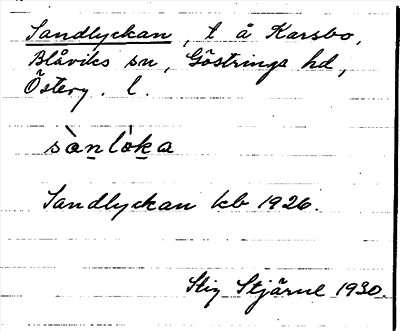 Sandlyckan, t å Karsbo,
Blåviks sn, Göstringe hd,
Österg. l.
sànlò̱ka
Sandlyckan kb 1926.
Stig Stjärne 1930.